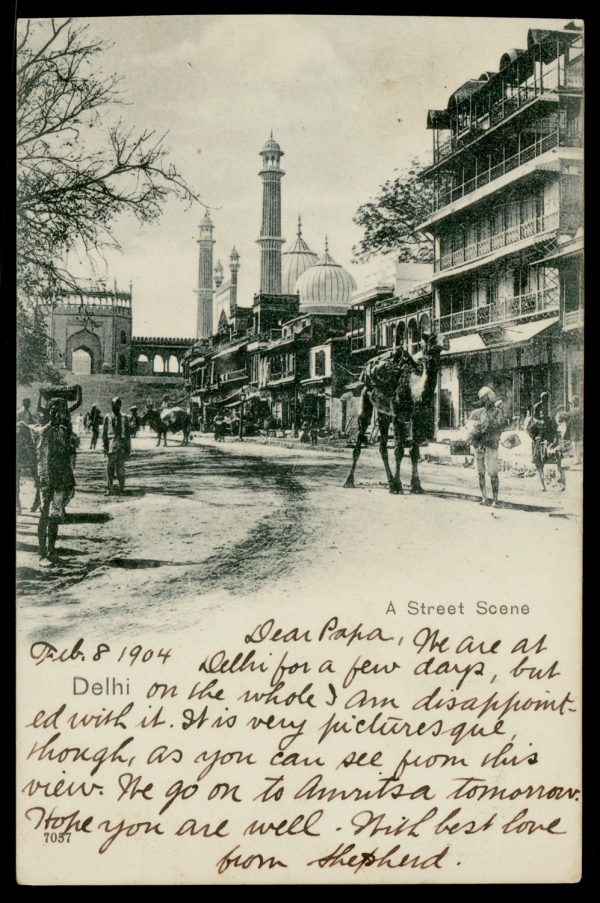 A Street Scene
Feb. 8 1904
Dear Papa, We are at
Delhi for a few days, but
Delhi
on the whole I am disappoint-
ed with it. It is very picturesque,
though, as you can see from this
view. We go on to Amritsa tomorrow.
Hope you are well. With best love
7057
from Shepherd.